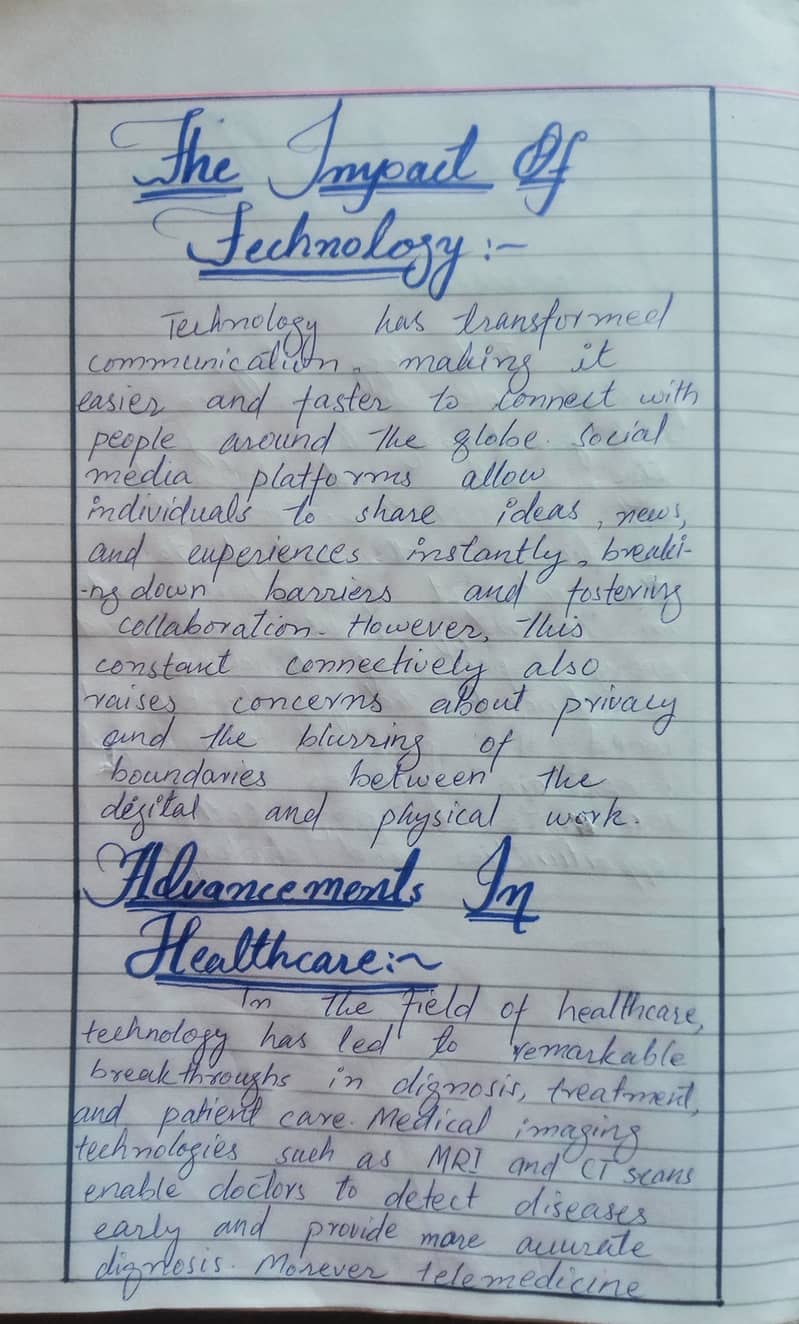 The Impact Of
Technology:-
Technology has transformed
communication, making it
easier and faster to connect with
people around the globe. Social
media platforms allow
individuals to share ideas, news,
and experiences instantly, breaki-
-ng down barriers and fostering
collaboration. However, this
constant connectively also
raises concerns about privacy
and the blurring of
boundaries between the
digital and physical work.
Advancements In
Healthcare:~
In the field of healthcare,
technology has led to remarkable
breakthroughs in dignosis, treatment,
and patient care. Medical imaging
technologies such as MRI and CT scans
enable doctors to detect diseases
early and provide more accurate
dignosis. Morever telemedicine